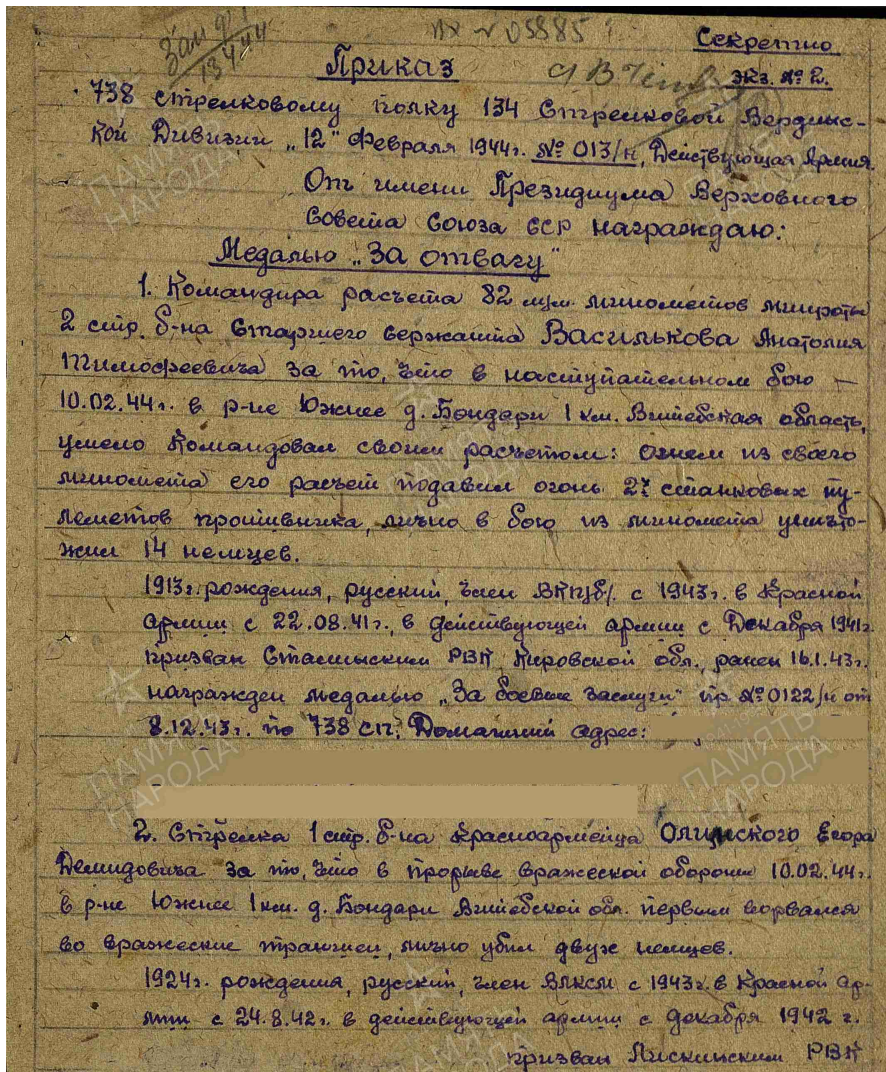 Зам д 1
13444
Вх № 05885
Секретно
экз. № 2.
Приказ
738 стрелковому полку 134 Стрелковой Вердинс-
кой Дивизии „12" Февраля 1944г. № 013/н, Действующая Армия.
От имени Президиума Верховного
Совета Союза ССР награждаю:
Медалью „За отвагу"
1. Командира расчета 82 м/м. минометов минроты
2 стр. б-на Старшего Сержанта Василькова Анатолия
Тимофеевича за то, что в наступательном бою —
10.02.44г. в р-не Южнее д. Бондари 1 км. Витебская область,
умело Командовал своим расчетом: Огнем из своего
миномета его расчет подавил огонь 2х станковых пу-
леметов противника, лично в бою из миномета уничто-
жил 14 немцев.
1913г. рождения, русский, член ВКП/б/. с 1943г. в Красной
Армии с 22.08.41г., в действующей армии с Декабря 1941г.
призван Сталинским РВК, Кировской обл., ранен 16.1.43г.
награжден медалью „За боевые заслуги" пр №0122/н от
8.12.43г. по 738 сп. Домашний адрес:
2. Стрелка 1 стр. б-на Красноармейца Олимского Егора
Демидовича за то, что в прорыве вражеской обороны 10.02.44г.
в р-не Южнее 1 км. д. Бондари Витебской обл. первым ворвался
во вражеские траншеи, лично убил двух немцев.
1924г. рождения, русский, член ВЛКСМ с 1943г. в Красной Ар-
мии с 24.8.42г. в действующей армии с декабря 1942 г.
призван Лискинским РВК
ПАМЯТЬ
НАРОДА